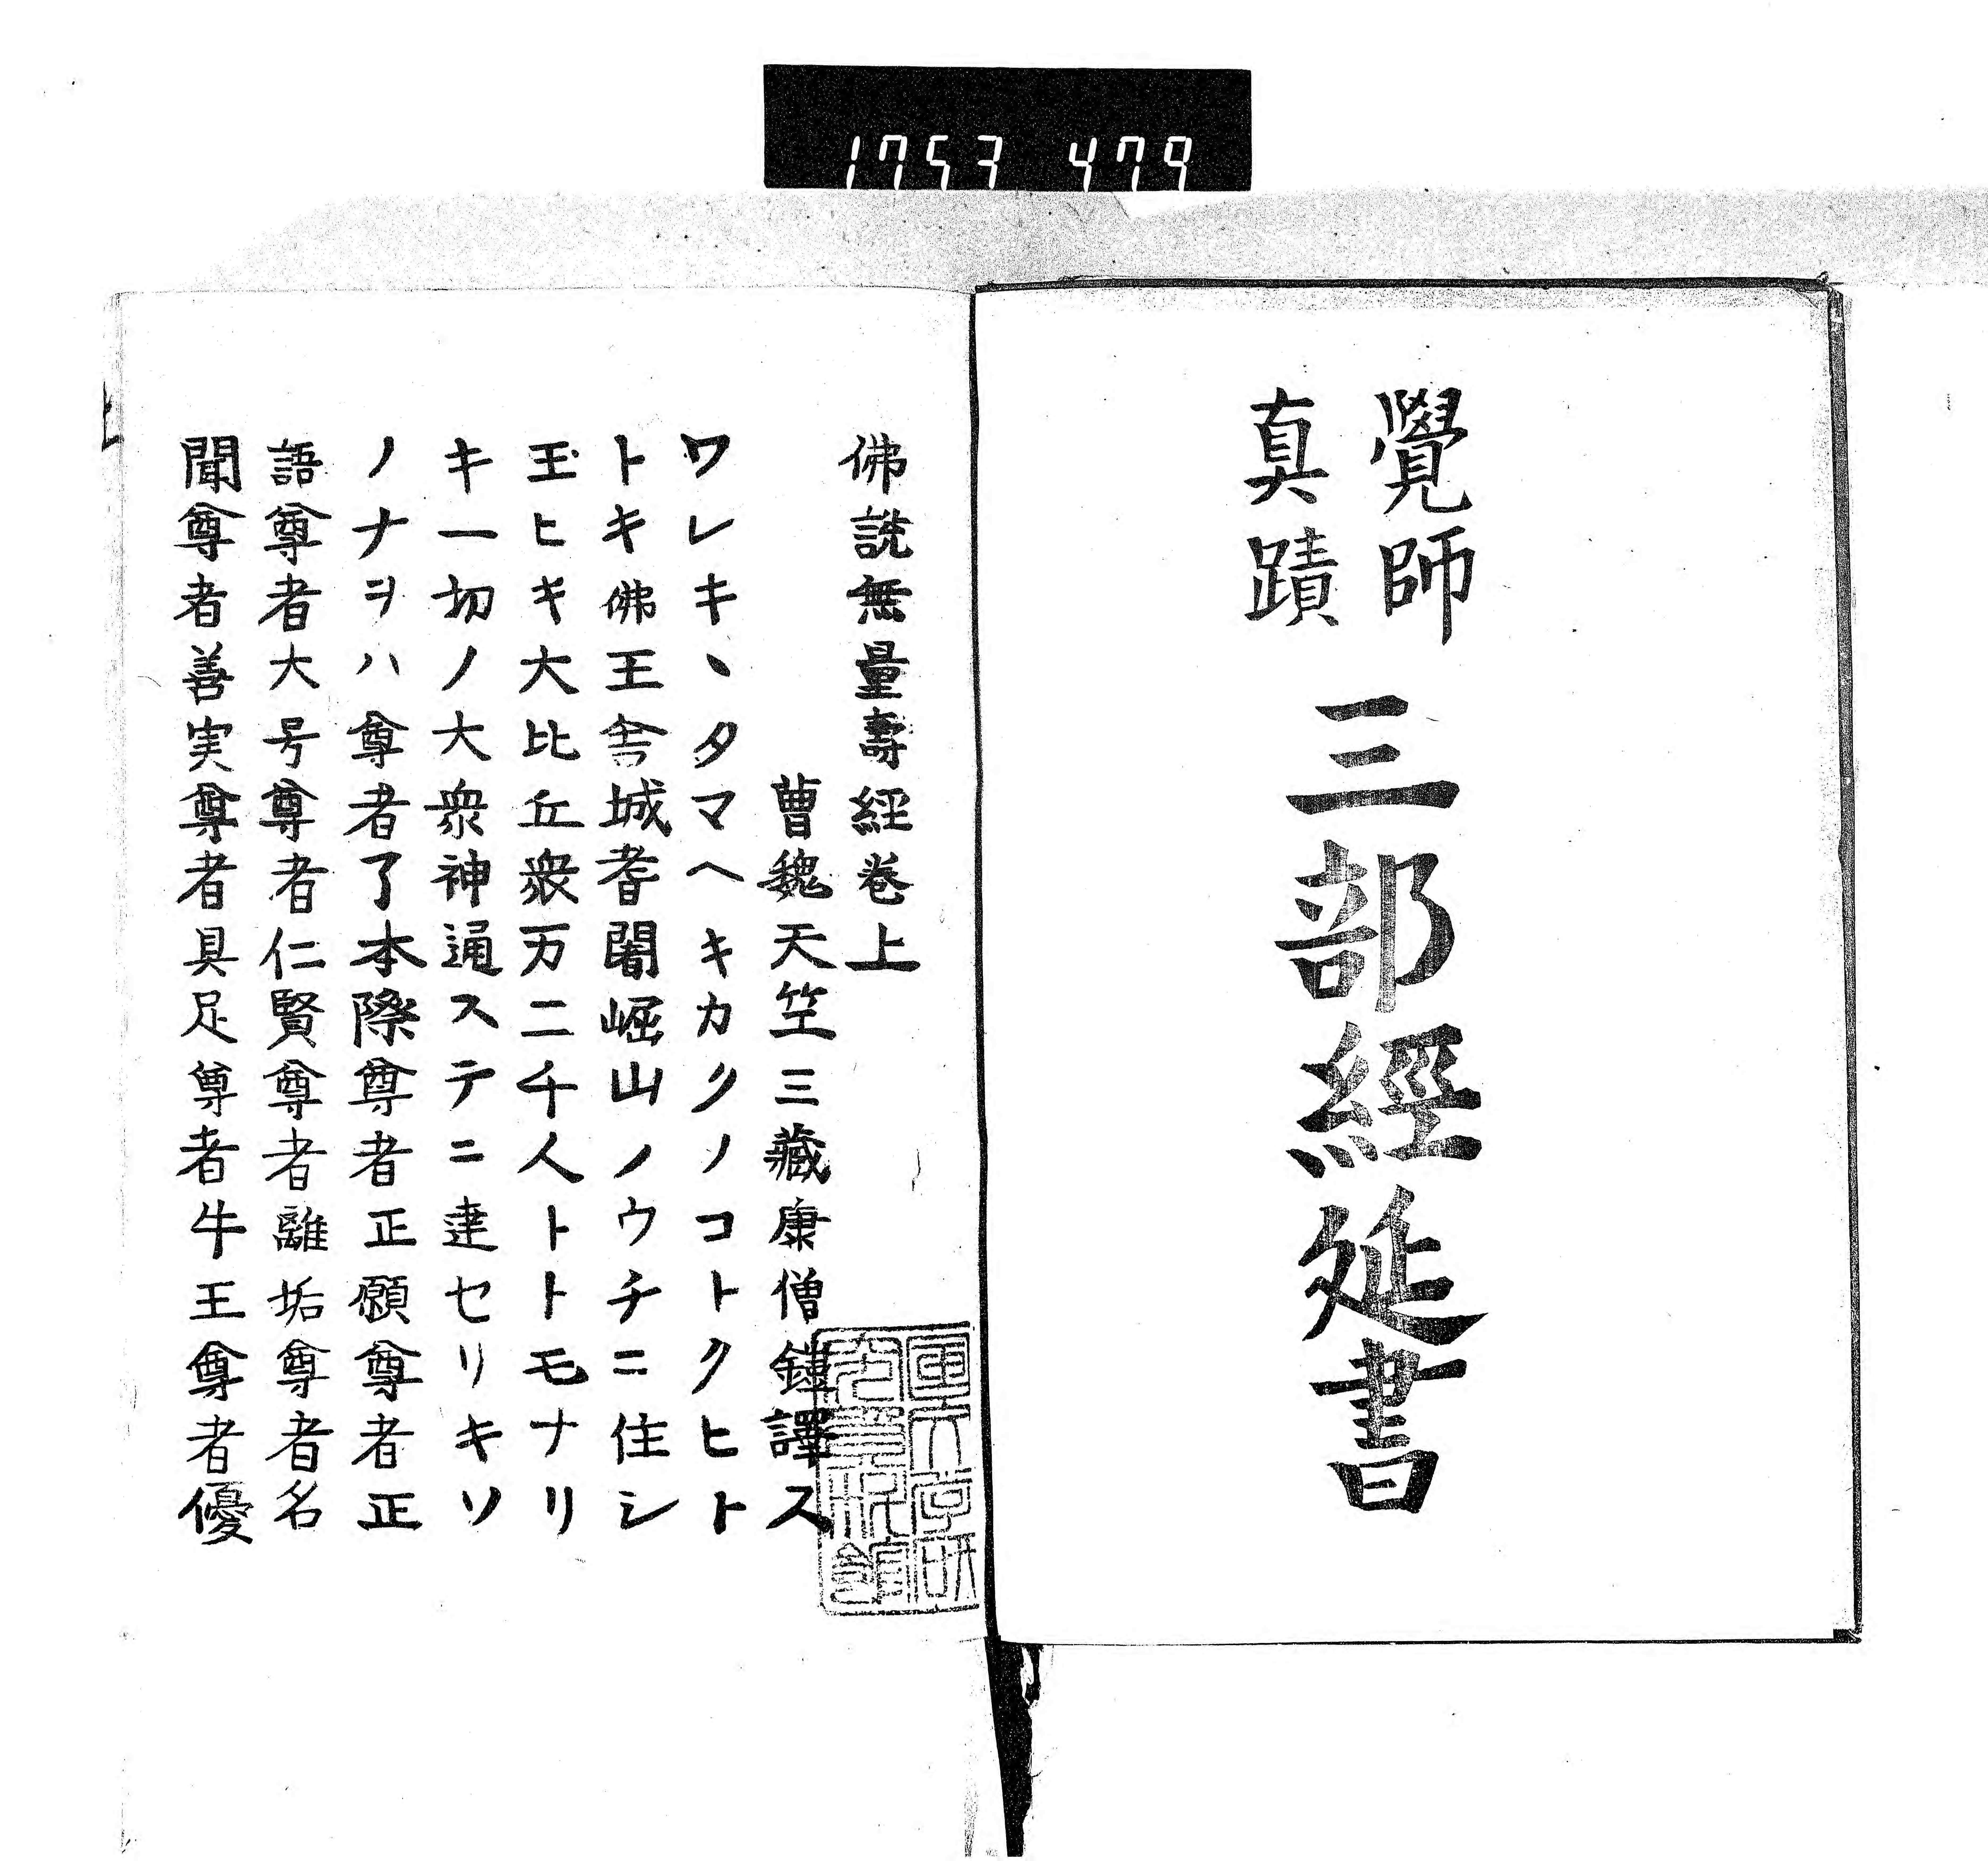 1753 479
覺師
真蹟
三部經延書
佛説無量壽經巻上
曹魏天竺三藏康僧鎧譯ス
ワレキヽタマヘキカクノコトクヒト
トキ佛王舎城耆闍崛山ノウチニ住シ
玉ヒキ大比丘衆万二千人トトモナリ
キ一切ノ大衆神通ステニ達セリキソ
ノナヲハ尊者了本際尊者正願尊者正
語尊者大号尊者仁賢尊者離垢尊者名
聞尊者善実尊者具足尊者牛王尊者優